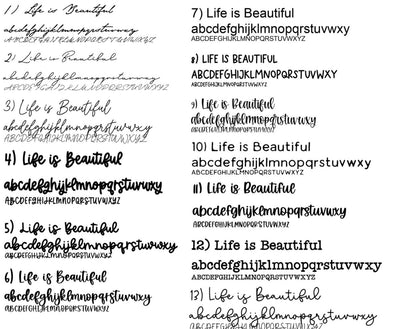 1) Life is Beautiful
abcdefghijklmnopqrstuvwxy
ABCDEFGHIJKLMNOPQRSTUVWXYZ
2) Life is Beautiful
abcdefghijklmnopqrstuvwxy
ABCDEFGHIJKLMNOPQRSTUVWXYZ
3) Life is Beautiful
abcdefghijklmnopqrstuvwxy
ABCDEFGHIJKLMNOPQRSTUVWXYZ
4) Life is Beautiful
abcdefghijklmnopqrstuvwxy
ABCDEFGHIJKLMNOPQRSTUVWXYZ
5) Life is Beautiful
abcdefghijklmnopqrstuvwxy
ABCDEFGHIJKLMNOPQRSTUVWXYZ
6) Life is Beautiful
abcdefghijklmnopqrstuvwxy
ABCDEFGHIJKLMNOPQRSTUVWXYZ
7) Life is Beautiful
abcdefghijklmnopqrstuvwxy
ABCDEFGHIJKLMNOPQRSTUVWXYZ
8) LIFE IS BEAUTIFUL
ABCDEFGHIJKLMNOPQRSTUVWXY
ABCDEFGHIJKLMNOPQRSTUVWXYZ
9) Life is Beautiful
abcdefghijklmnopqrstuvwxy
ABCDEFGHIJKLMNOPQRSTUVWXYZ
10) Life is Beautiful
abcdefghijklmnopqrstuvwxy
ABCDEFGHIJKLMNOPQRSTUVWXYZ
11) Life is Beautiful
abcdefghijklmnopqrstuvwxy
ABCDEFGHIJKLMNOPQRSTUVWXYZ
12) Life is Beautiful
abcdefghijklmnopqrstuvwxy
ABCDEFGHIJKLMNOPQRSTUVWXYZ
13) Life is Beautiful
abcdefghijklmnopqrstuvwxy
ABCDEFGHIJKLMNOPQRSTUVWXYZ